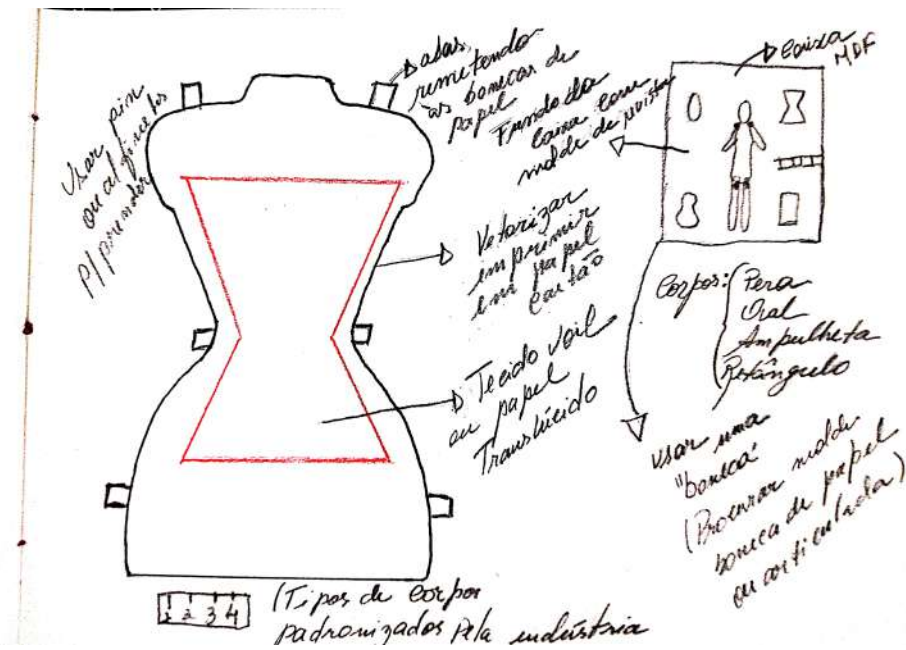 Usar pin
ou alfinetes
p/ prender
abas,
remetendo
as bonecas de
papel
Fundo da
Caixa com
molde de revista
Caixa
MDF
Vetorizar
imprimir
em papel
cartão
Tecido voil
ou papel
Translúcido
Corpos:
Pera
Oval
Ampulheta
Retângulo
Usar uma
"boneca"
(Procurar molde
boneca de papel
ou articulada)
1 2 3 4
(Tipos de corpos
padronizados pela indústria